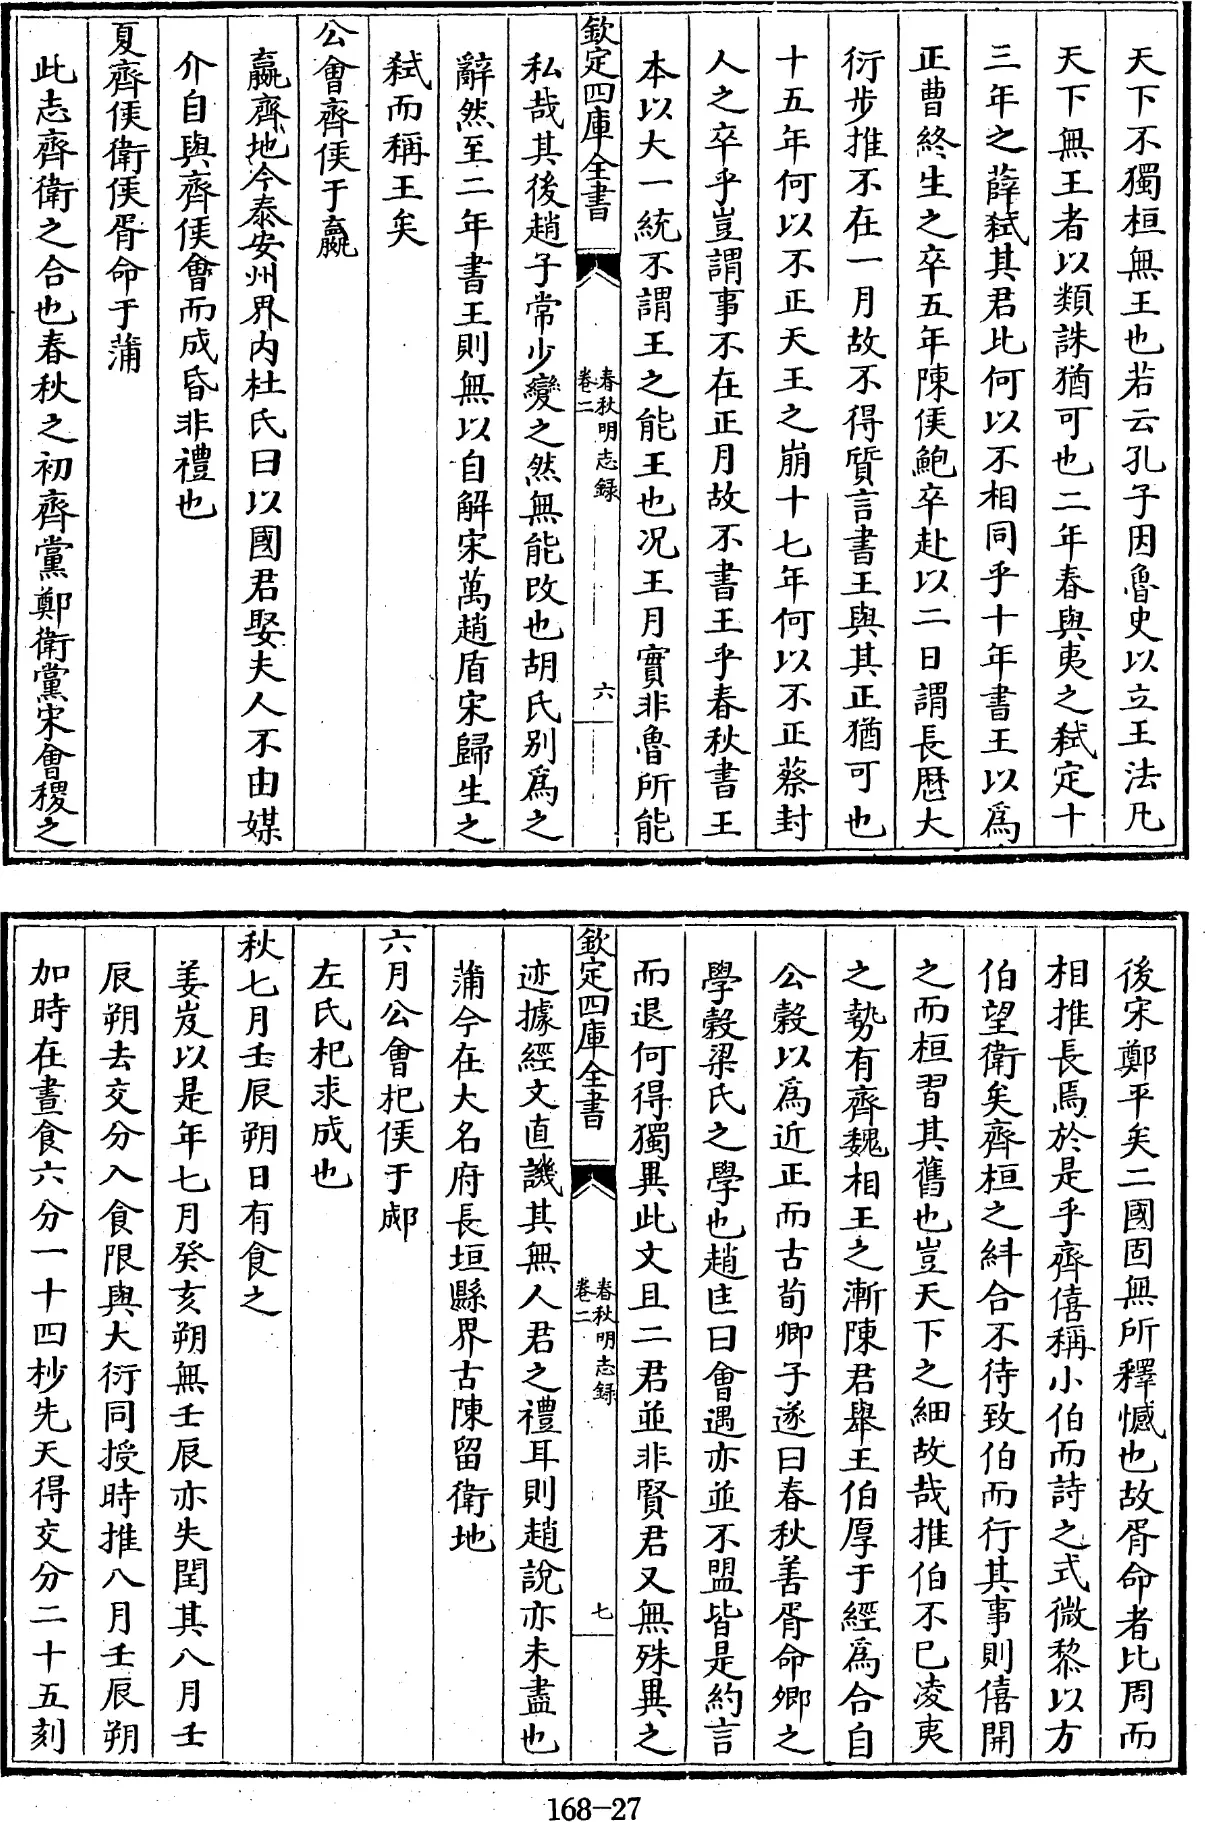 天下不獨桓無王也若云孔子因魯史以立王法凡
天下無王者以類誅猶可也二年春與夷之弑定十
三年之薛弑其君比何以不相同乎十年書王以為
正曹終生之卒五年陳侯鮑卒赴以二日謂長厯大
衍步推不在一月故不得質言書王與其正猶可也
十五年何以不正天王之崩十七年何以不正蔡封
人之卒乎豈謂事不在正月故不書王乎春秋書王
本以大一統不謂王之能王也况王月實非魯所能
欽定四庫全書
春秋明志録
卷二
六
私哉其後趙子常少變之然無能改也胡氏别為之
辭然至二年書王則無以自解宋萬趙盾宋歸生之
弑而稱王矣
公會齊侯于嬴
嬴齊地今泰安州界内杜氏曰以國君娶夫人不由媒
介自與齊侯會而成昏非禮也
夏齊侯衛侯胥命于蒲
此志齊衛之合也春秋之初齊黨鄭衛黨宋會稷之
後宋鄭平矣二國固無所釋憾也故胥命者比周而
相推長焉於是乎齊僖稱小伯而詩之式微黎以方
伯望衛矣齊桓之糾合不待致伯而行其事則僖開
之而桓習其舊也豈天下之細故哉推伯不已凌夷
之勢有齊魏相王之漸陳君舉王伯厚于經為合自
公穀以為近正而古荀卿子遂曰春秋善胥命卿之
學穀梁氏之學也趙匡曰會遇亦並不盟皆是約言
而退何得獨異此文且二君並非賢君又無殊異之
欽定四庫全書
春秋明志録
卷二
七
迹據經文直譏其無人君之禮耳則趙說亦未盡也
蒲今在大名府長垣縣界古陳留衛地
六月公會杞侯于郕
左氏杞求成也
秋七月壬辰朔日有食之
姜岌以是年七月癸亥朔無壬辰亦失閏其八月壬
辰朔去交分入食限與大衍同授時推八月壬辰朔
加時在晝食六分一十四杪先天得交分二十五刻
168-27